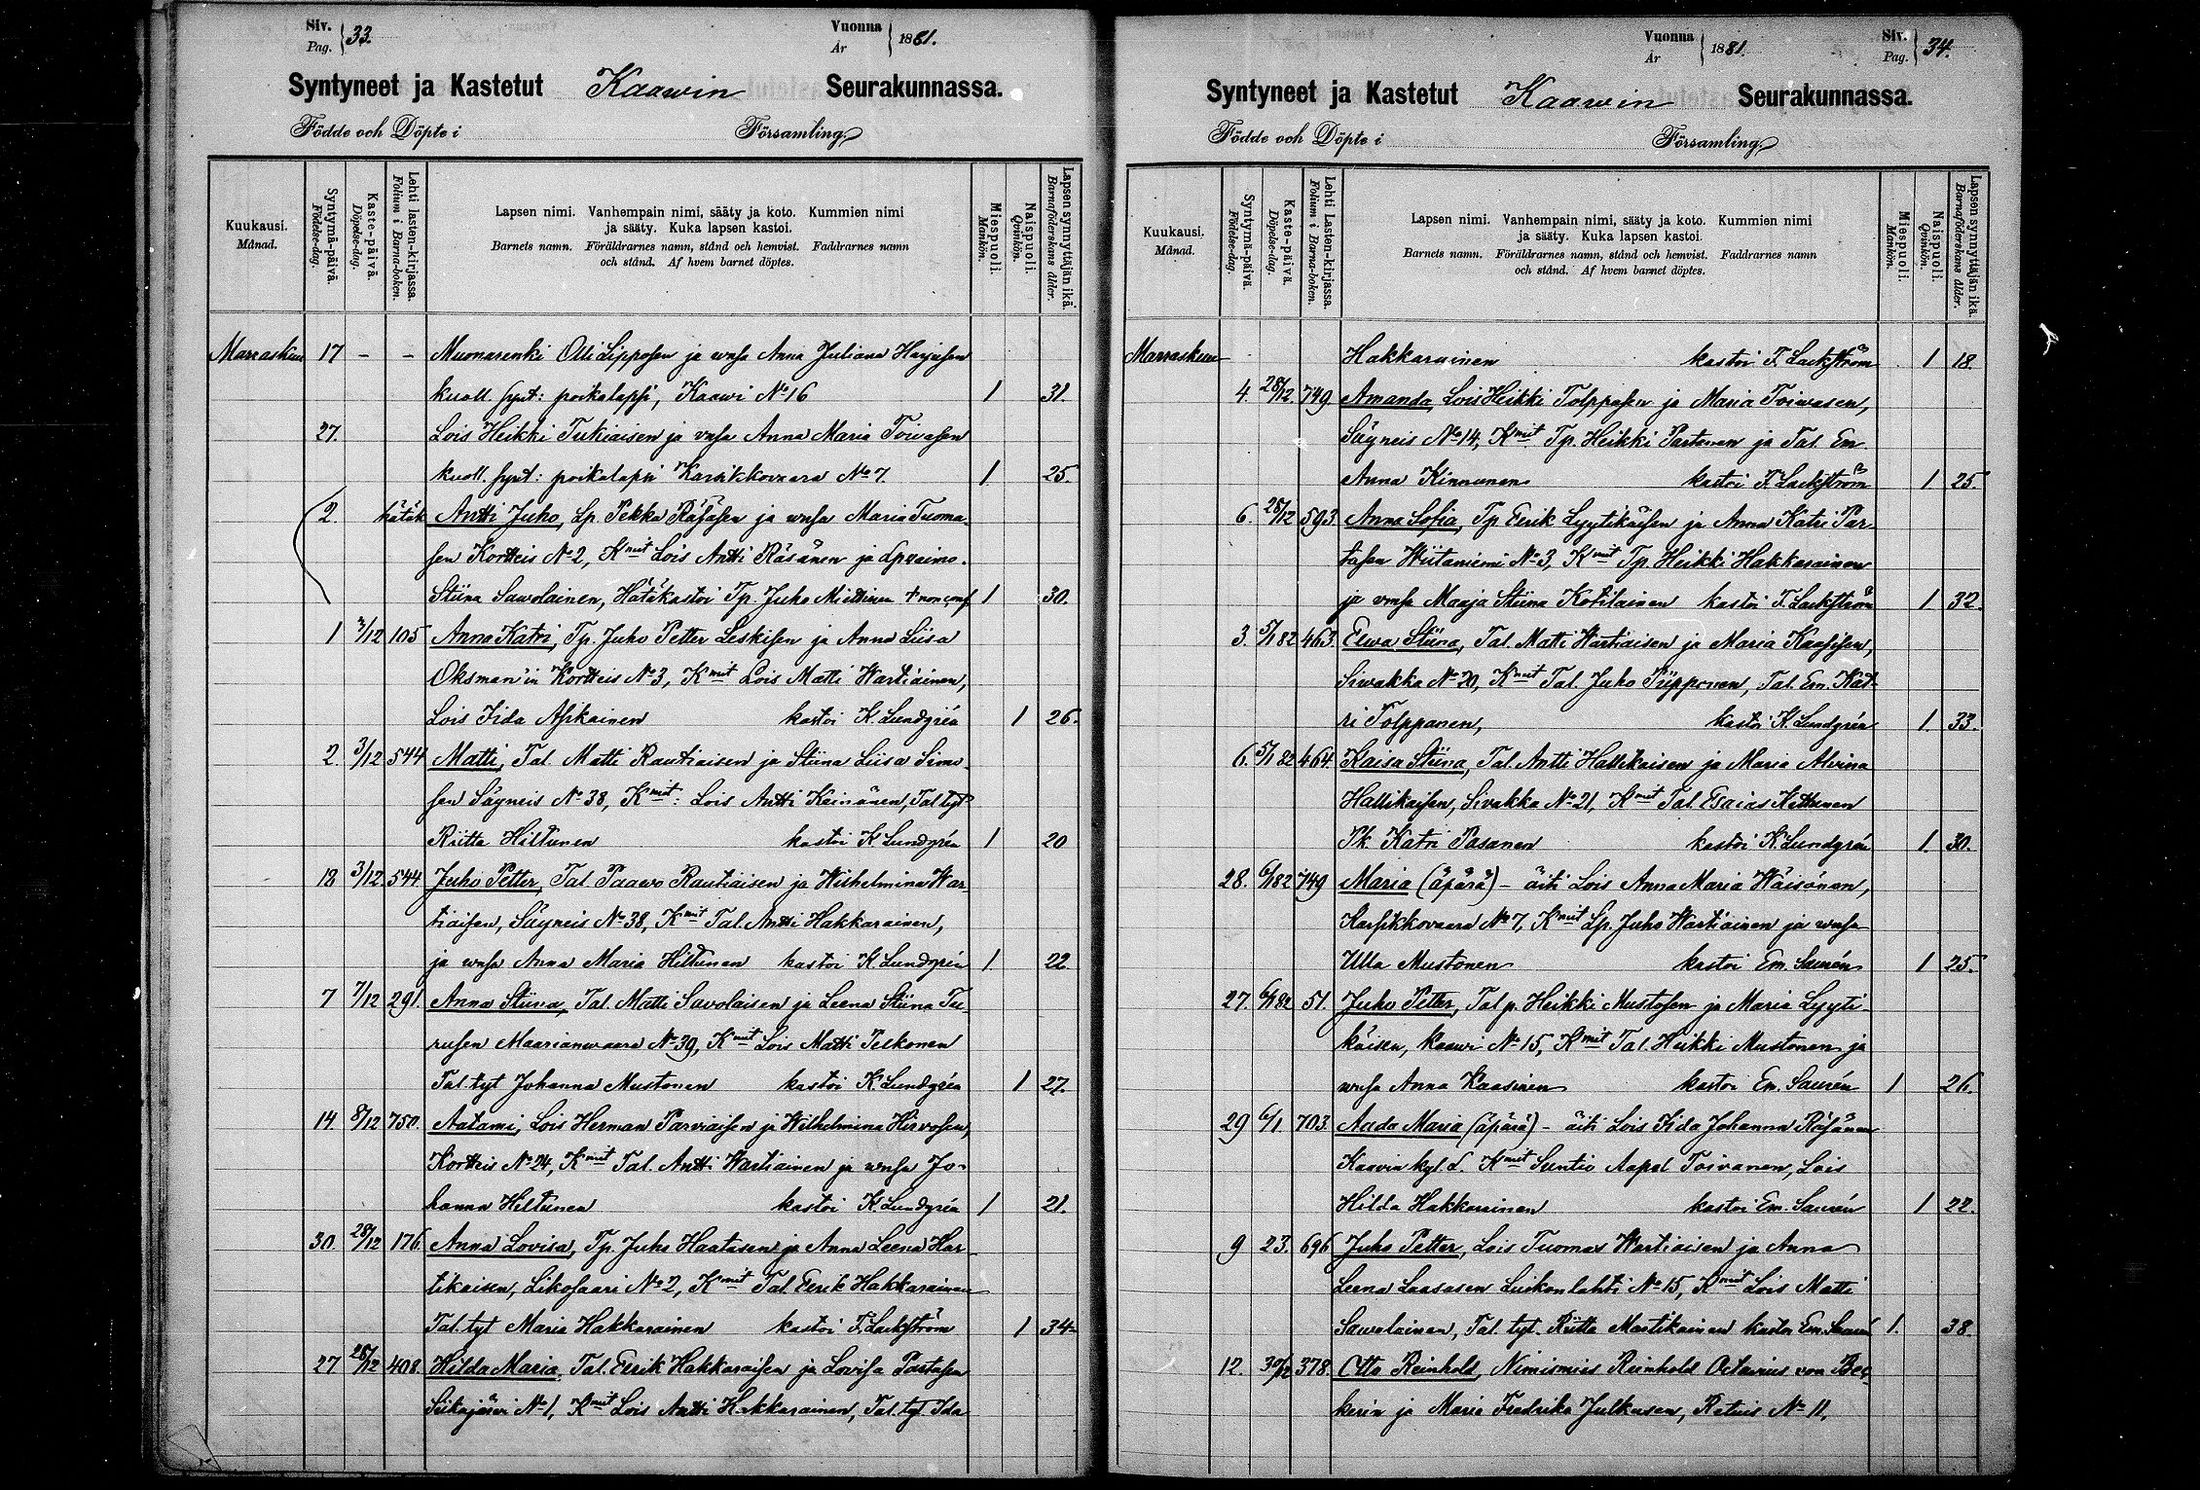 Siv. Pag. 33. Vuonna År 1881.
Syntyneet ja Kastetut Kaawin Seurakunnassa.
Födde och Döpte i Församling.
Kuukausi. Månad. Syntymä-päivä. Födelse-dag. Kaste-päivä. Döpelse-dag. Lehti lasten-kirjassa. Folium i Barna-boken. Lapsen nimi. Vanhempain nimi, sääty ja koto. Kummien nimi ja sääty. Kuka lapsen kastoi. Barnets namn. Föräldrarnes namn, stånd och hemvist. Faddrarnes namn och stånd. Af hvem barnet döptes. Miespuoli. Mankön. Naispuoli. Qvinkön. Lapsen synnyttäjän ikä. Barnaföderskans ålder.
Marraskuu 17 - - Muonarenki Olli Lipposen ja wmsa Anna Juliana Harjusen
kuoll. synt: poikalapsi, Kaawi No 16 1 31.
27. Lois Heikki Tukiaisen ja vmsa Anna Maria Toivasen
kuoll. synt: poikalapsi Karsikkovaara No 7. 1. 25.
2. hätäk Antti Juho, Lp. Pekka Räsäsen ja wmsa Maria Tuoma-
sen Kortteis No 2, Kmit Lois Antti Räsänen ja
Stiina Sawolainen, Hätäkastoi Tp. Juho Miettinen 1 30.
1 3/12 105 Anna Katri, Tp. Juho Petter Leskisen ja Anna Liisa
Oksman'in Kortteis No 3, Kmit Lois Matti Wartiainen,
Lois Iida Asikainen kastoi K. Lundgrén 1 26.
2. 3/12 544 Matti, Tal. Matti Rautiaisen ja Stiina Liisa Simo-
sen Säyneis No 38, Kmit: Lois Antti Keinänen, Tal tyt
Riitta Hiltunen kastoi K Lundgrén 1 20
18 3/12. 544. Juho Petter, Tal. Paawo Rautiaisen ja Wilhelmina War-
tiaisen, Säyneis No 38, Kmit Tal. Antti Hakkarainen,
ja wmsa Anna Maria Hiltunen kastoi K. Lundgrén 1. 22
7 7/12 291. Anna Stiina, Tal. Matti Savolaisen ja Leena Stiina Tu-
rusen Maarianwaara No 39, Kmit Lois Matti Pelkonen
Tal. tyt Johanna Mustonen kastoi K Lundgrén 1 27.
14. 8/12 750. Aatami, Lois Herman Parviaisen ja Wilhelmina Hirvosen,
Kortteis No 24, Kmit Tal. Antti Wartiainen ja wmsa Jo-
hanna Hiltunen kastoi K. Lundgrén 1 21.
30. 28/12 176. Anna Lovisa, Tp. Juho Haatasen ja Anna Leena Har-
tikaisen, Likosaari No 2, Kmit Tal. Eerik Hakkarainen
Tal. tyt Maria Hakkarainen kastoi F. Lackström 1 34
27 28/12 408. Hilda Maria, Tal. Eerik Hakkaraisen ja Lovisa Partasen
Siikajärvi No 1, Kmit Lois Antti Hakkarainen, Tal. tyt Ida
Vuonna År 1881. Siv. Pag. 34.
Syntyneet ja Kastetut Kaawin Seurakunnassa.
Födde och Döpte i Församling.
Kuukausi. Månad. Syntymä-päivä. Födelse-dag. Kaste-päivä. Döpelse-dag. Lehti Lasten-kirjassa. Folium i Barna-boken. Lapsen nimi. Vanhempain nimi, sääty ja koto. Kummien nimi ja sääty. Kuka lapsen kastoi. Barnets namn. Föräldrarnes namn, stånd och hemvist. Faddrarnes namn och stånd. Af hvem barnet döptes. Miespuoli. Mankön. Naispuoli. Qvinkön. Lapsen synnyttäjän ikä. Barnaföderskans ålder.
Marraskuu Hakkarainen kastoi F. Lackström 1 18.
4. 28/12. 749 Amanda, Lois Heikki Tolppasen ja Maria Toivasen,
Säyneis No 14, Kmit Tp. Heikki Partanen ja Tal. Em.
Anna Kinnunen kastoi F. Lackström 1 25.
6. 28/12 593. Anna Sofia, Tp Eerik Lyytikäisen ja Anna Katri Par-
tasen Wiitaniemi No 3, Kmit Tp. Heikki Hakkarainen
ja vmsa Maaja Stiina Kotilainen kastoi F. Lackström 1 32.
3. 5/1 82 463. Eewa Stiina, Tal. Matti Wartiaisen ja Maria Kaasisen,
Siwakka No 20, Kmit Tal. Juho Piipponen, Tal. Em. Kat-
ri Tolppanen, kastoi K. Lundgrén 1. 33.
6. 5/1 82 464. Kaisa Stiina, Tal. Antti Hallikaisen ja Maria Alvina
Hallikaisen, Sivakka No 21, Kmit Tal. Esaias Kettunen
Pk Katri Pasanen kastoi K. Lundgrén 1. 30.
28. 6/1 82 749 Maria (äpärä) - äiti Lois Anna Maria Wäisänen,
Karsikkovaara No 7, Kmit Lp. Juho Wartiainen ja wmsa
Ulla Mustonen kastoi Em. Saurén 1 25.
27. 6/1 82 51. Juho Petter, Tal p. Heikki Mustosen ja Maria Lyyti-
käisen, Kaawi No 15, Kmit Tal. Heikki Mustonen ja
wmsa Anna Kaasinen kastoi Em. Saurén 1 26.
29 6/1 703. Aada Maria (äpärä) - äiti Lois Iida Johanna Räsänen
Kaavin kyl. L. Kmit Suntio Aapel Toivanen, Lois
Hilda Hakkarainen kastoi Em. Saurén 1 22.
9 23. 696 Juho Petter, Lois Tuomas Wartiaisen ja Anna
Leena Laasasen Luikonlahti No 15, Kmit Lois Matti
Sawolainen, Tal. tyt. Riitta Martikainen kastoi Em. Saurén 1. 38.
12. 30/12 378. Otto Reinhold, Nimismies Reinhold Octavius von Bec-
kerin ja Maria Fredrika Julkusen, Retuis No 11.